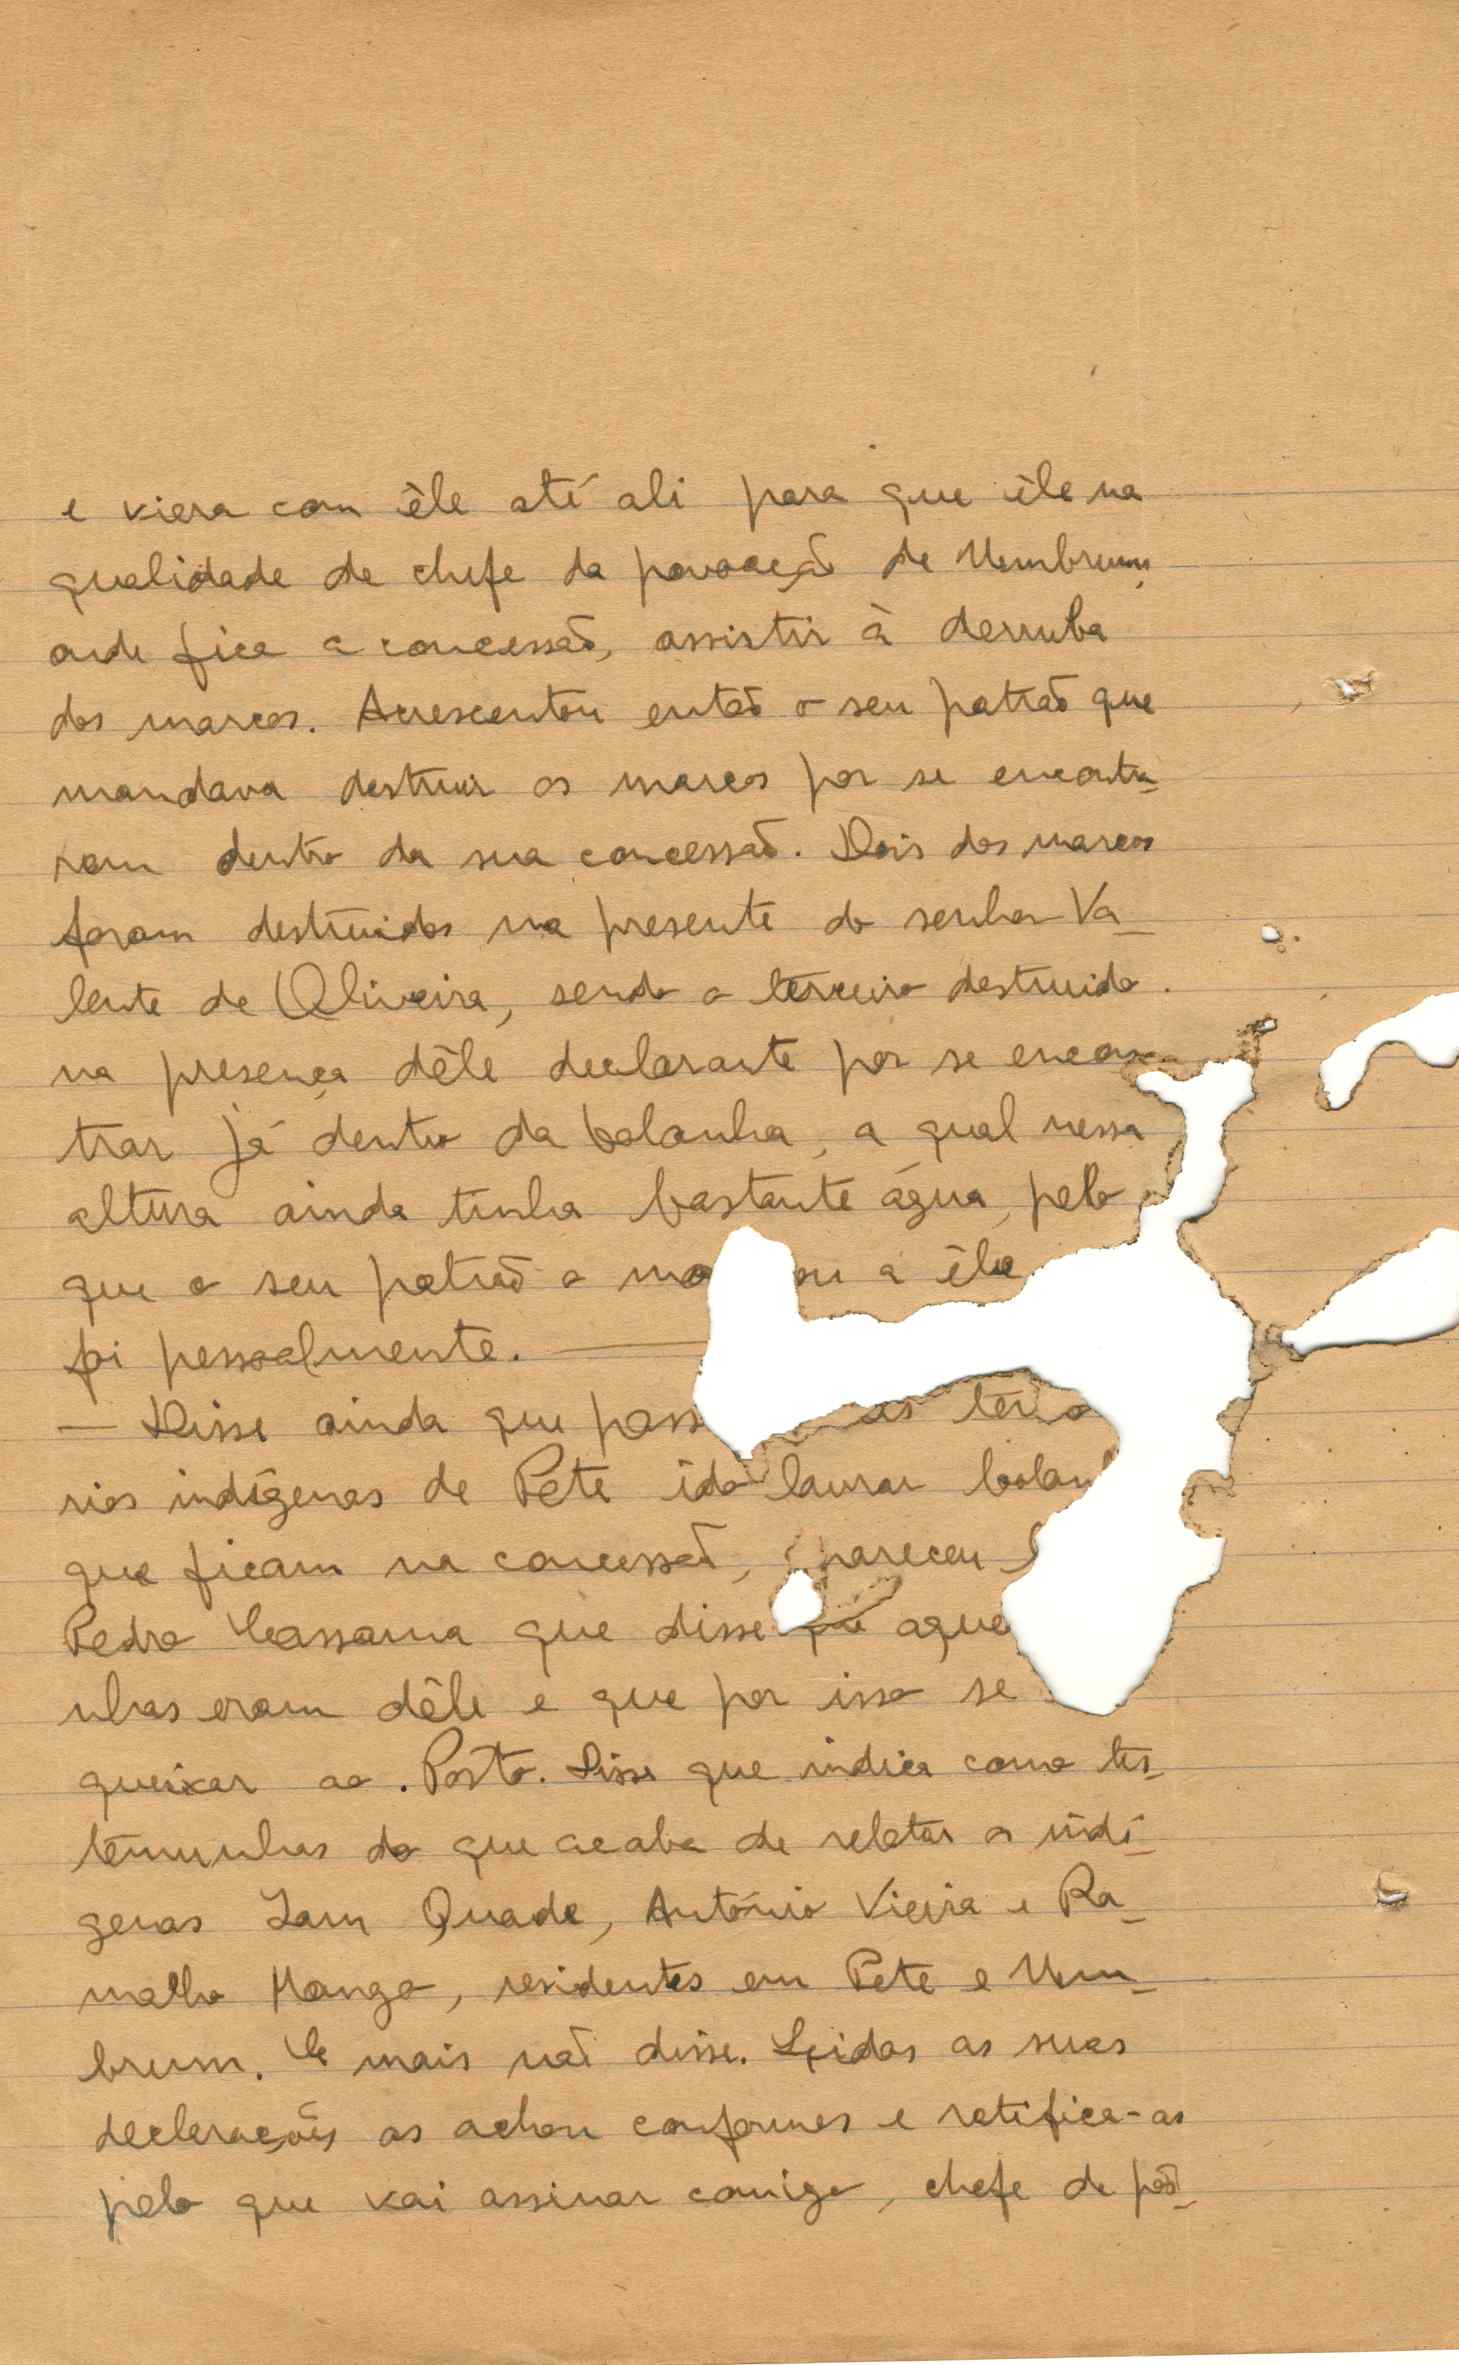 e viera com êle até ali para que êle na
qualidade de chefe da povoação de Umbrum,
onde fica a concessão, assistir à derruba
dos marcos. Acrescentou então o seu patrão que
mandava destruir os marcos por se encontra_
rem dentro da sua concessão. Dois dos marcos
foram destruidos na presente do senhor Va_
lente de Oliveira, sendo o terceiro destruido
na presença dêle declarante por se encon_
trar já dentro da bolanha, a qual nessa
altura ainda tinha bastante água, pelo
que o seu patrão o a êle
foi pessoalmente.
— Disse ainda que
rios indígenas de Pete ido lavrar
que ficam na concessão,
Pedro Cassama que disse que
nhas eram dêle e que por isso se
queixar ao Posto. Disse que indica como tes_
temunhas do que acaba de relatar os indí_
genas Lam Quade, António Vieira e Ra_
malho Mango, residentes em Pete e Um_
brum. E mais não disse. Lidas as suas
declarações as achou conformes e ratifica-as
pelo que vai assinar comigo, chefe de pôs_